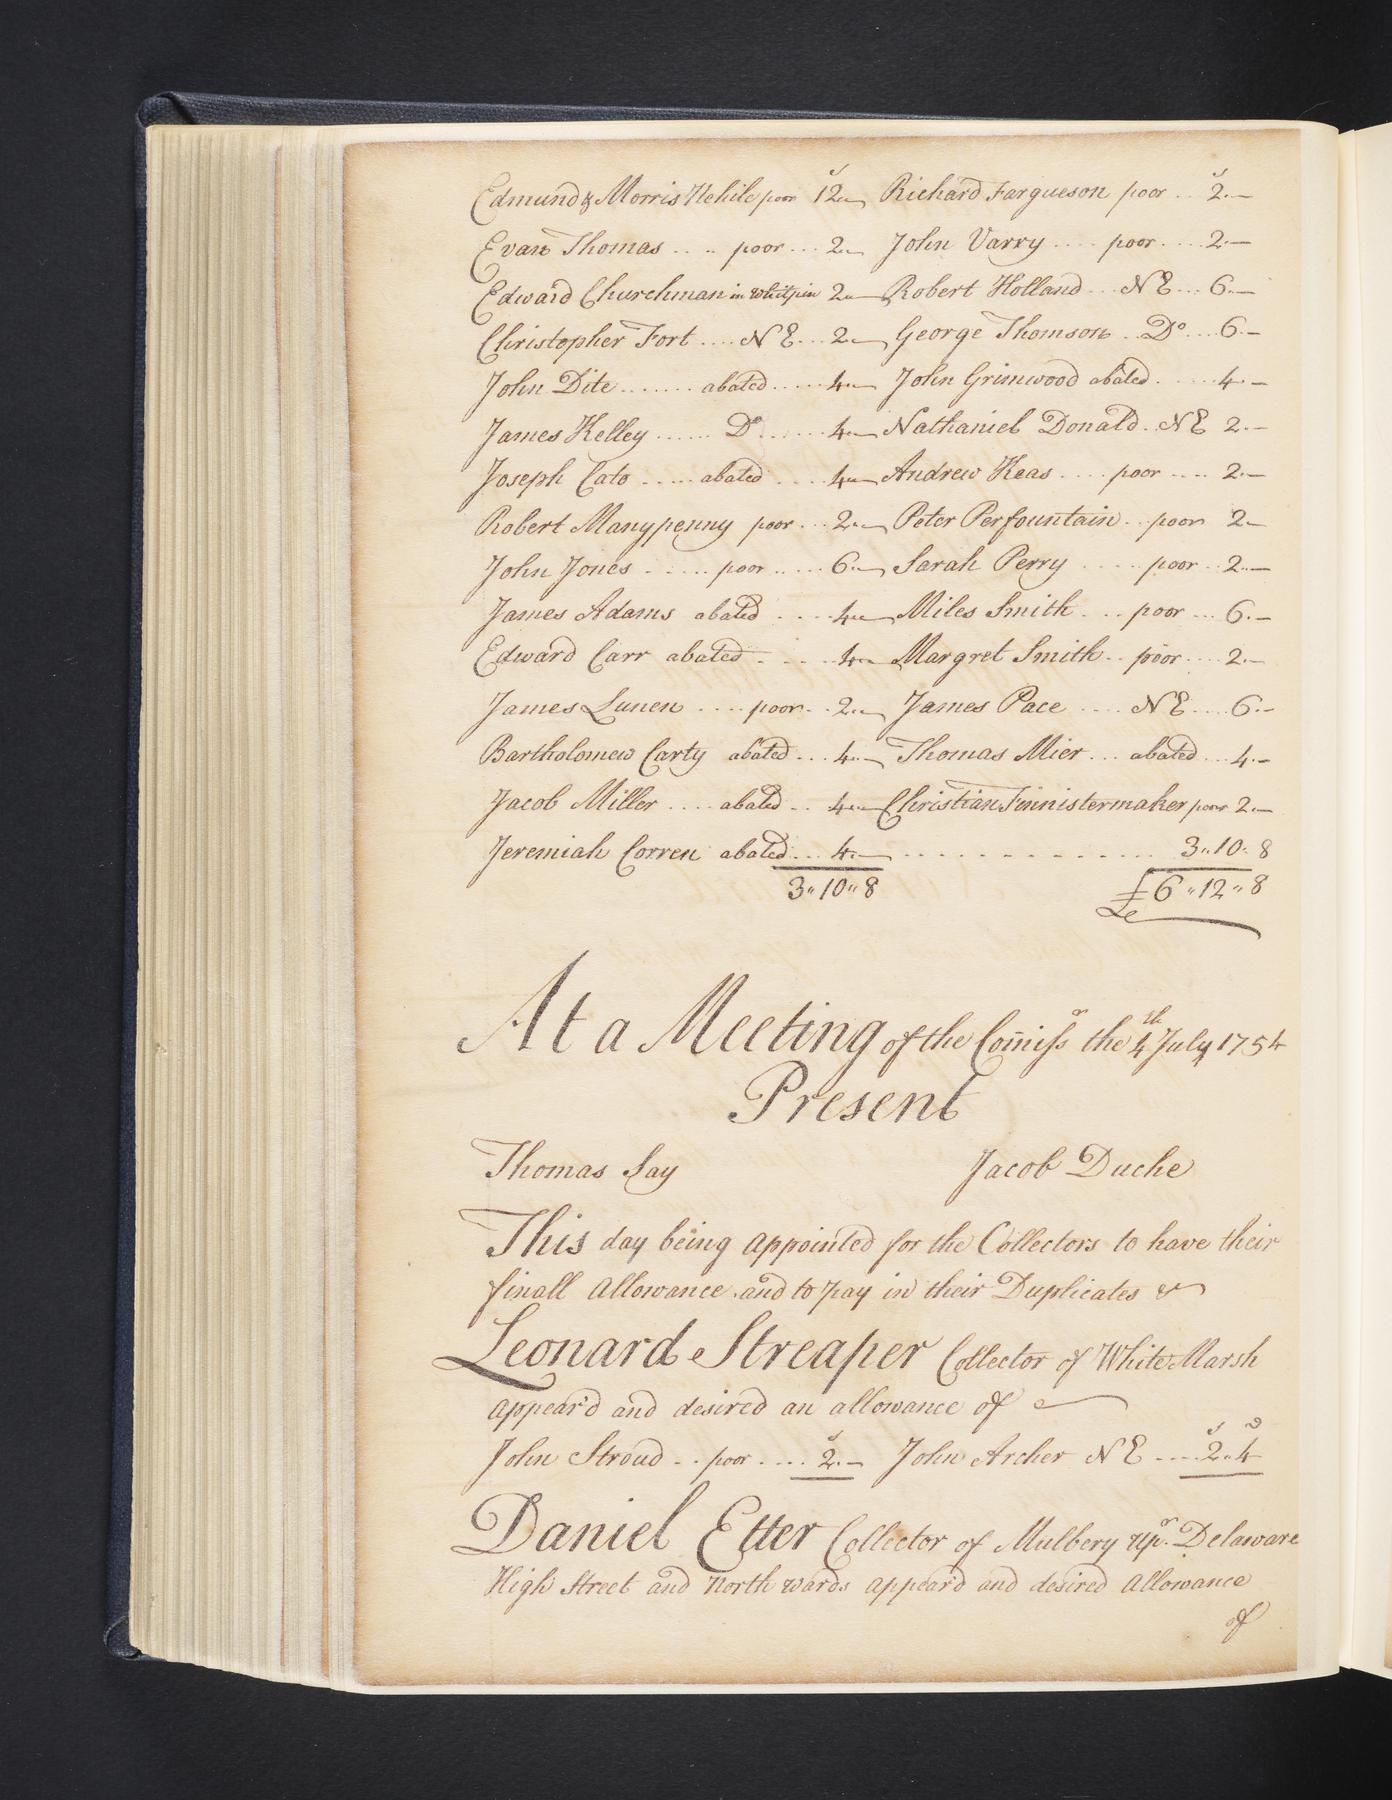 Edmund & Morris Nehile poor 12„— Richard Fargueson poor .. 2.—
Evan Thomas .... poor ... 2„— John Varry .... poor .... 2.—
Edward Churchman in Whitpin 2„— Robert Holland ... NE ... 6.—
Christopher Fort .... NE ... 2.— George Thomson .. Do ... 6.—
John Dite ....... abated ..... 4.— John Grimwood abated ...... 4.—
James Kelley ...... Do ...... 4.— Nathaniel Donald .. NE 2.—
Joseph Cato ..... abated .... 4„— Andrew Keas .... poor .... 2.—
Robert Manypenny poor ... 2.— Peter Perfountain .. poor 2—
John Jones ...... poor ..... 6.— Sarah Perry ..... poor .. 2.—
James Adams abated .... 4.— Miles Smith ... poor ... 6.—
Edward Carr abated .... 4.— Margret Smith .. poor .... 2.—
James Lunen .... poor .. 2.— James Pace .... NE .... 6.—
Bartholomew Carty abated ... 4.— Thomas Mier ... abated ... 4.—
Jacob Miller .... abated .. 4.— Christian Finnistermaker poor 2.—
Jeremiah Corren abated ... 4.— .............. 3„10„8
3„10„8 £6„12„8
At a Meeting of the Com̄issrs the 4th July 1754
Present
Thomas Say Jacob Duche
This day being appointed for the Collectors to have their
finall Allowance and to pay in their Duplicates &
Leonard Streaper Collector of White Marsh
appear'd and desired an allowance of
John Stroud .. poor .... 2.— John Archer NE .... 2„4
Daniel Etter Collector of Mulbery Upr. Delaware
High Street and North wards appear'd and desired Allowance
of